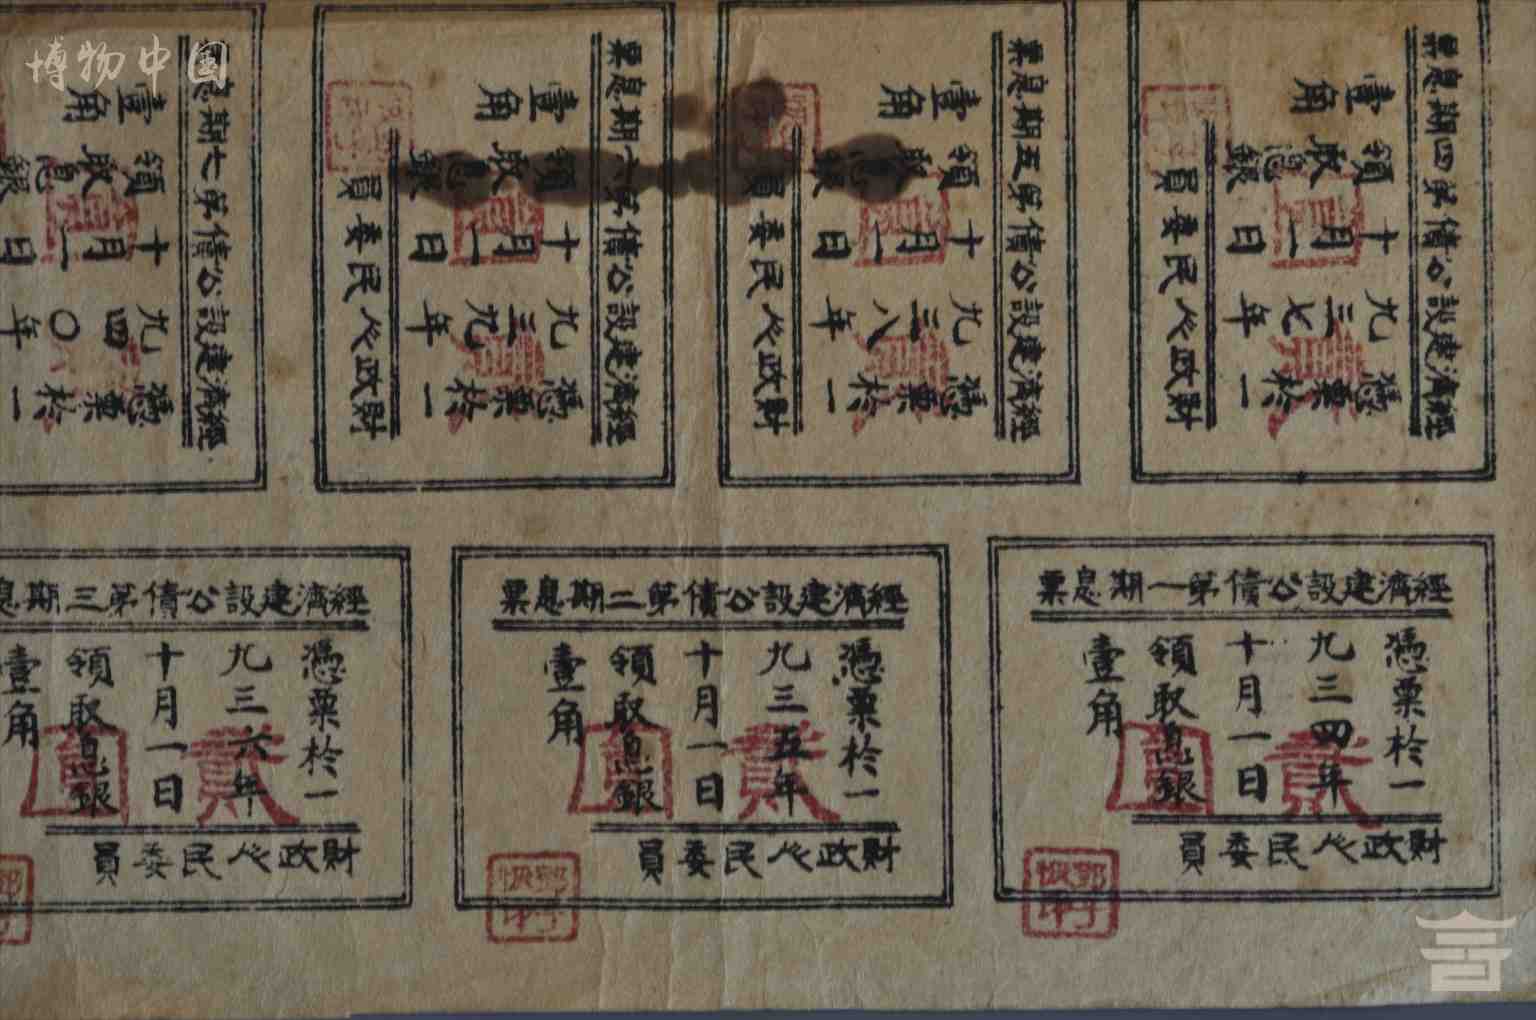 博物中国
經濟建設公債第四期息票
憑票於一
九三七年
十月一日
領取息銀
壹角
財政人民委員
經濟建設公債第五期息票
憑票於一
九三八年
十月一日
領取息銀
壹角
財政人民委員
經濟建設公債第六期息票
憑票於一
九三九年
十月一日
領取息銀
壹角
財政人民委員
經濟建設公債第七期息
憑票於一
九四〇年
十月一日
領取息銀
壹角
經濟建設公債第一期息票
憑票於一
九三四年
十月一日
領取息銀
壹角
貳圓
財政人民委員
鄧子恢印
經濟建設公債第二期息票
憑票於一
九三五年
十月一日
領取息銀
壹角
貳圓
財政人民委員
鄧子恢印
經濟建設公債第三期息
憑票於一
九三六年
十月一日
領取息銀
壹角
貳圓
財政人民委員